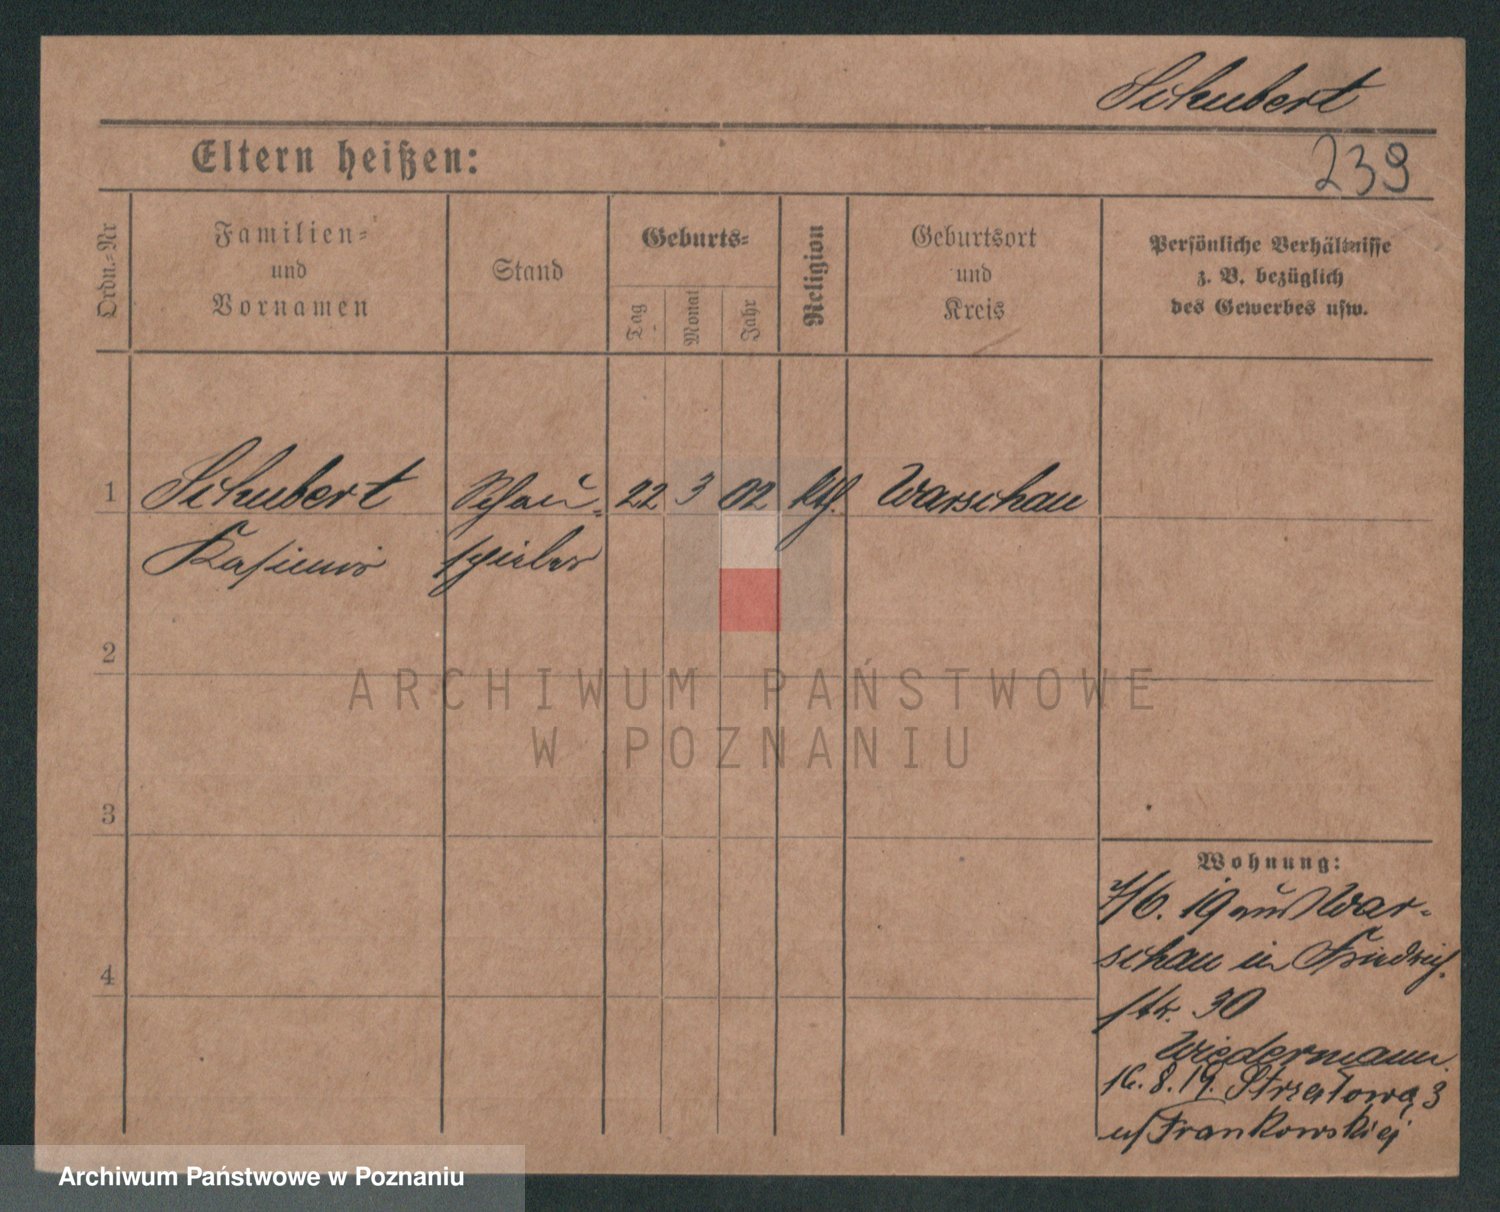 Schubert
239
Eltern heißen:
Ordn.-Nr
Familien-
und
Vornamen
Stand
Geburts-
Tag
Monat
Jahr
Religion
Geburtsort
und
Kreis
Persönliche Verhältnisse
z. B. bezüglich
des Gewerbes usw.
1
Schubert
Schau-
22
3
02
kth.
Warschau
Kasimir
spieler
2
ARCHIWUM PAŃSTWOWE
W POZNANIU
3
Wohnung:
7/6. 19 aus War-
schau in Friedrich-
str. 30
4
Wiedermann.
16.8.19. Strzałowa 3
u/ Frankowskiej
Archiwum Państwowe w Poznaniu